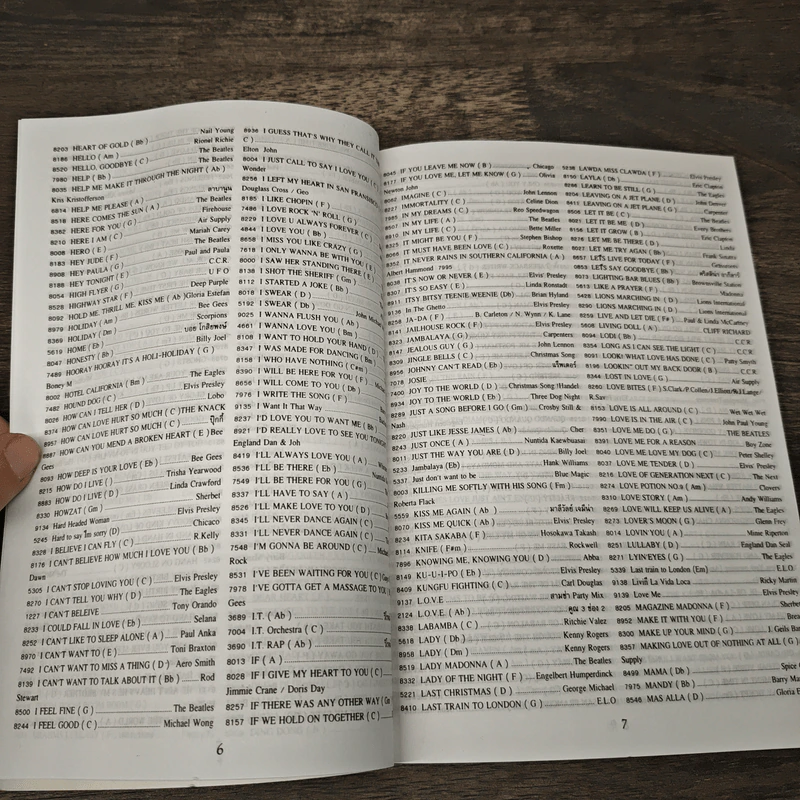 8203 HEART OF GOLD ( Bb ) Nail Young
8186 HELLO ( Am ) Rionel Richie
8520 HELLO, GOODBYE ( C ) The Beatles
7980 HELP ( Bb ) The Beatles
8035 HELP ME MAKE IT THROUGH THE NIGHT ( Ab )
Kris Kristofferson
6814 HELP ME PLEASE ( A ) ลาบานูน
8518 HERE COMES THE SUN ( A ) The Beatles
8362 HERE FOR YOU ( G ) Firehouse
8210 HERE I AM ( C ) Air Supply
8008 HERO ( E ) Mariah Carey
8183 HEY JUDE ( F ) The Beatles
8908 HEY PAULA ( G ) Paul and Paula
8185 HEY TONIGHT ( E ) C.C.R.
8054 HIGH FLYER ( G ) U F O
8528 HIGHWAY STAR ( F ) Deep Purple
8092 HOLD ME, THRILL ME, KISS ME ( Ab ) Gloria Estefan
8979 HOLIDAY ( Am ) Bee Gees
8369 HOLIDAY ( Dm ) Scorpions
5619 HOME ( Eb ) บอย โกสิยพงษ์
8047 HONESTY ( Bb ) Billy Joel
7489 HOORAY HOORAY IT'S A HOLI-HOLIDAY ( G )
Boney M
8002 HOTEL CALIFORNIA ( Bm ) The Eagles
7482 HOUND DOG ( C ) Elvis Presley
8026 HOW CAN I TELL HER ( D ) Lobo
8374 HOW CAN LOVE HURT SO MUCH ( C ) THE KNACK
8957 HOW CAN LOVE HURT SO MUCH ( G ) ปุ๊กกี้
8887 HOW CAN YOU MEND A BROKEN HEART ( E ) Bee
Gees
8093 HOW DEEP IS YOUR LOVE ( Eb ) Bee Gees
8215 HOW DO I LIVE ( ) Trisha Yearwood
8883 HOW DO I LIVE ( D ) Linda Crawford
8330 HOWZAT ( Gm ) Sherbet
9134 Hard Headed Woman Elvis Presley
5245 Hard to say I'm sorry (D) Chicaco
8328 I BELIEVE I CAN FLY ( C ) R.Kelly
8176 I CAN'T BELIEVE HOW MUCH I LOVE YOU ( Bb )
Dawn
5305 I CAN'T STOP LOVING YOU ( C ) Elvis Presley
8270 I CAN'T TELL YOU WHY ( D ) The Eagles
1227 I CAN'T BELEIVE Tony Orando
8233 I COULD FALL IN LOVE ( Eb ) Selana
8252 I CAN'T LIKE TO SLEEP ALONE ( A ) Paul Anka
8970 I CAN'T WANT TO ( E ) Toni Braxton
7492 I CAN'T WANT TO MISS A THING ( D ) Aero Smith
8139 I CAN'T WANT TO TALK ABOUT IT ( Bb ) Rod
Stewart
8500 I FEEL FINE ( G ) The Beatles
8244 I FEEL GOOD ( C ) Michael Wong
8936 I GUESS THAT'S WHY THEY CALL IT
C )
Elton John
8004 I JUST CALL TO SAY I LOVE YOU ( C )
Wonder
8256 I LEFT MY HEART IN SAN FRANSISCO
Douglass Cross / Geo
8185 I LIKE CHOPIN ( F )
7486 I LOVE ROCK 'N' ROLL ( G )
8229 I LOVE U ALWAYS FOREVER ( C )
4844 I LOVE YOU ( Bb )
8658 I MISS YOU LIKE CRAZY ( G )
7618 I ONLY WANNA BE WITH YOU ( E )
8000 I SAW HER STANDING THERE ( E )
8136 I SHOT THE SHERIFF ( Gm )
8112 I STARTED A JOKE ( Bb )
8018 I SWEAR ( D )
5192 I SWEAR ( Db ) John
9025 I WANNA FLUSH YOU ( Ab )
4661 I WANNA LOVE YOU ( Bm )
8108 I WANT TO HOLD YOUR HAND ( D )
8347 I WAS MADE FOR DANCING ( Bm )
8158 I WHO HAVE NOTHING ( C#m )
8390 I WILL BE HERE FOR YOU ( F )
8656 I WILL COME TO YOU ( Db )
7976 I WRITE THE SONG ( F )
9135 I Want It That Way
8237 I'D LOVE YOU TO WANT ME ( Bb )
8921 I'D REALLY LOVE TO SEE YOU TONIGHT
England Dan & Joh
8419 I'LL ALWAYS LOVE YOU ( A )
8536 I'LL BE THERE ( Eb )
7549 I'LL BE THERE FOR YOU ( G )
8337 I'LL HAVE TO SAY ( A )
8526 I'LL MAKE LOVE TO YOU ( D )
8331 I'LL NEVER DANCE AGAIN ( C )
8345 I'LL NEVER DANCE AGAIN ( C )
7548 I'M GONNA BE AROUND ( C ) Michael
Rock
8531 I'VE BEEN WAITING FOR YOU ( C )
7978 I'VE GOTTA GET A MASSAGE TO YOU
Gees
3689 I.T. ( Ab )
7004 I.T. Orchestra ( C )
3690 I.T. RAP ( Ab )
8013 IF ( A )
8028 IF I GIVE MY HEART TO YOU ( C )
Jimmie Crane / Doris Day
8257 IF THERE WAS ANY OTHER WAY ( Gm
8157 IF WE HOLD ON TOGETHER ( C )
6
8045 IF YOU LEAVE ME NOW ( B ) Chicago
8177 IF YOU LOVE ME, LET ME KNOW ( G ) Olivia
Newton John
8062 IMAGINE ( C ) John Lennon
8227 IMMORTALITY ( C ) Celine Dion
IN MY DREAMS ( C ) Reo Speedwagon
IN MY LIFE ( A ) The Beatles
IN MY LIFE ( C ) Bette Miller
8325 IT MIGHT BE YOU ( F ) Stephen Bishop
8066 IT MUST HAVE BEEN LOVE ( C ) Roxette
8352 IT NEVER RAINS IN SOUTHERN CALIFORNIA ( A )
Albert Hammond 7995
8038 IT'S NOW OR NEVER ( E ) Elvis' Presley
8307 IT'S SO EASY ( E ) Linda Ronstadt
8911 ITSY BITSY TEENIE WEENIE (Db) Brian Hyland
9136 In The Ghetto Elvis Presley
8258 JA-DA ( F ) B. Carleton / N. Wynn / K. Lane
8141 JAILHOUSE ROCK ( F ) Elvis Presley
8323 JAMBALAYA ( G ) Carpenters
8147 JEALOUS GUY ( G ) John Lennon
8309 JINGLE BELLS ( C ) Christmas Song
8956 JOHNNY CAN'T READ ( Eb ) แร็พเตอร์
7078 JOSIE
7400 JOY TO THE WORLD ( D ) Christmas Song /Handel
8934 JOY TO THE WORLD ( Eb ) Three Dog Night
8289 JUST A SONG BEFORE I GO ( Gm ) Crosby Still &
Nash
8220 JUST LIKE JESSE JAMES ( Ab ) Cher
8043 JUST ONCE ( A ) Nuntida Kaewbuasai
8011 JUST THE WAY YOU ARE ( D ) Billy Joel
5223 Jambalaya (Eb) Hank Williams
5337 Just don't want to be Blue Magic
8003 KILLING ME SOFTLY WITH HIS SONG ( Fm )
Roberta Flack
5559 KISS ME AGAIN ( Ab ) มาลีวัลย์ เจมีน่า
8070 KISS ME QUICK ( Ab ) Elvis' Presley
8234 KITA SAKABA ( F ) Hosokawa Takash
8114 KNIFE ( F#m ) Rockwell
7896 KNOWING ME, KNOWING YOU ( D ) Abba
8149 KU-U-I-PO ( Eb ) Elvis Presley
8409 KUNGFU FIGHTING ( C ) Carl Douglas
9137 L.O.V.E สามช่า Party Mix
2124 L.O.V.E. ( Ab ) คูณ 3 ช่อง 2
8338 LABAMBA ( C ) Ritchie Valez
5618 LADY ( Db ) Kenny Rogers
8958 LADY ( Dm ) Kenny Rogers
8519 LADY MADONNA ( A ) The Beatles
8332 LADY OF THE NIGHT ( F ) Engelbert Humperdinck
5221 LAST CHRISTMAS ( D ) George Michael
8410 LAST TRAIN TO LONDON ( G ) E.L.O
5298 LAWDA MISS CLAWDA ( F ) Elvis Presley
8190 LAYLA ( Db ) Eric Clapton
8286 LEARN TO BE STILL ( G ) The Eagles
8204 LEAVING ON A JET PLANE ( D ) John Denver
8411 LEAVING ON A JET PLANE ( G ) Carpenter
8506 LET IT BE ( C ) The Beatles
8021 LET IT BE ME ( D ) Every Brothers
8156 LET IT GROW ( B ) Eric Clapton
8276 LET ME BE THERE ( D )
8277 LET ME TRY AGAIN ( Bb ) Frank Sinatra
8657 LET'S LIVE FOR TODAY ( F )
0853 LET'S SAY GOODBYE ( Bb )
8073 LIGHTING BAR BLUES ( Bb ) Brownsville Station
5613 LIKE A PRAYER ( F ) Madonna
5428 LIONS MARCHING IN ( D ) Lions International
8290 LIONS MARCHING IN ( D ) Lions International
8259 LIVE AND LET DIE ( F# ) Paul & Linda McCartney
5606 LIVING DOLL ( A ) CLIFF RICHARD
8094 LODI ( Bb ) C.C.R.
8354 LONG AS I CAN SEE THE LIGHT ( C ) C.C.R.
8091 LOOK! WHAT LOVE HAS DONE ( C ) Patty Smyth
8196 LOOKIN' OUT MY BACK DOOR ( B ) C.C.R.
8344 LOST IN LOVE ( G ) Air Supply
8260 LOVE BITES ( F ) S.Clark/P.Collen/J.Elliott/W.J.Lange/
R.Sav
8153 LOVE IS ALL AROUND ( C ) Wet Wet Wet
1990 LOVE IS IN THE AIR ( C ) John Paul Young
8151 LOVE ME DO ( G ) THE BEATLES
8391 LOVE ME FOR A REASON Boy Zone
8040 LOVE ME LOVE MY DOG ( C ) Peter Shelley
8037 LOVE ME TENDER ( D ) Elvis' Presley
8216 LOVE OF GENERATION NEXT ( C ) The Next
8274 LOVE POTION NO.9 ( Am ) Clovers
8310 LOVE STORY ( Am ) Andy Williams
8269 LOVE WILL KEEP US ALIVE ( A ) The Eagles
8273 LOVER'S MOON ( G ) Glenn Frey
8014 LOVIN YOU ( A ) Minne Riperton
8251 LULLABY ( D ) England Dan Seal
8271 LYIN'EYES ( G ) The Eagles
5339 Last train to London [Em] E.L.O
9138 Livin La Vida Loca Ricky Martin
9139 Love Me Elvis Presley
8205 MAGAZINE MADONNA ( F ) Sherbet
8952 MAKE IT WITH YOU ( F )
8300 MAKE UP YOUR MIND ( G ) J. Geils
8357 MAKING LOVE OUT OF NOTHING AT ALL ( G )
Supply.
8499 MAMA ( Db ) Spice
7975 MANDY ( Bb ) Barry
8546 MAS ALLA ( D ) Gloria
7